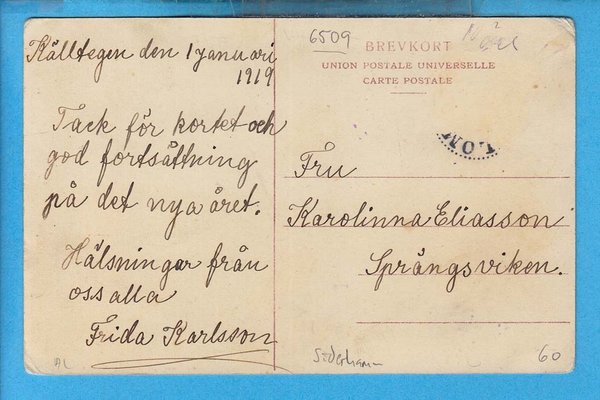 Källtegen den 1 januari
1919
Tack för kortet och
god fortsättning
på det nya året.
Hälsningar från
oss alla
Frida Karlsson
AL
6509
BREVKORT
UNION POSTALE UNIVERSELLE
CARTE POSTALE
Fru
Karolinna Eliasson
Sprängsviken.
Söderhamn
60